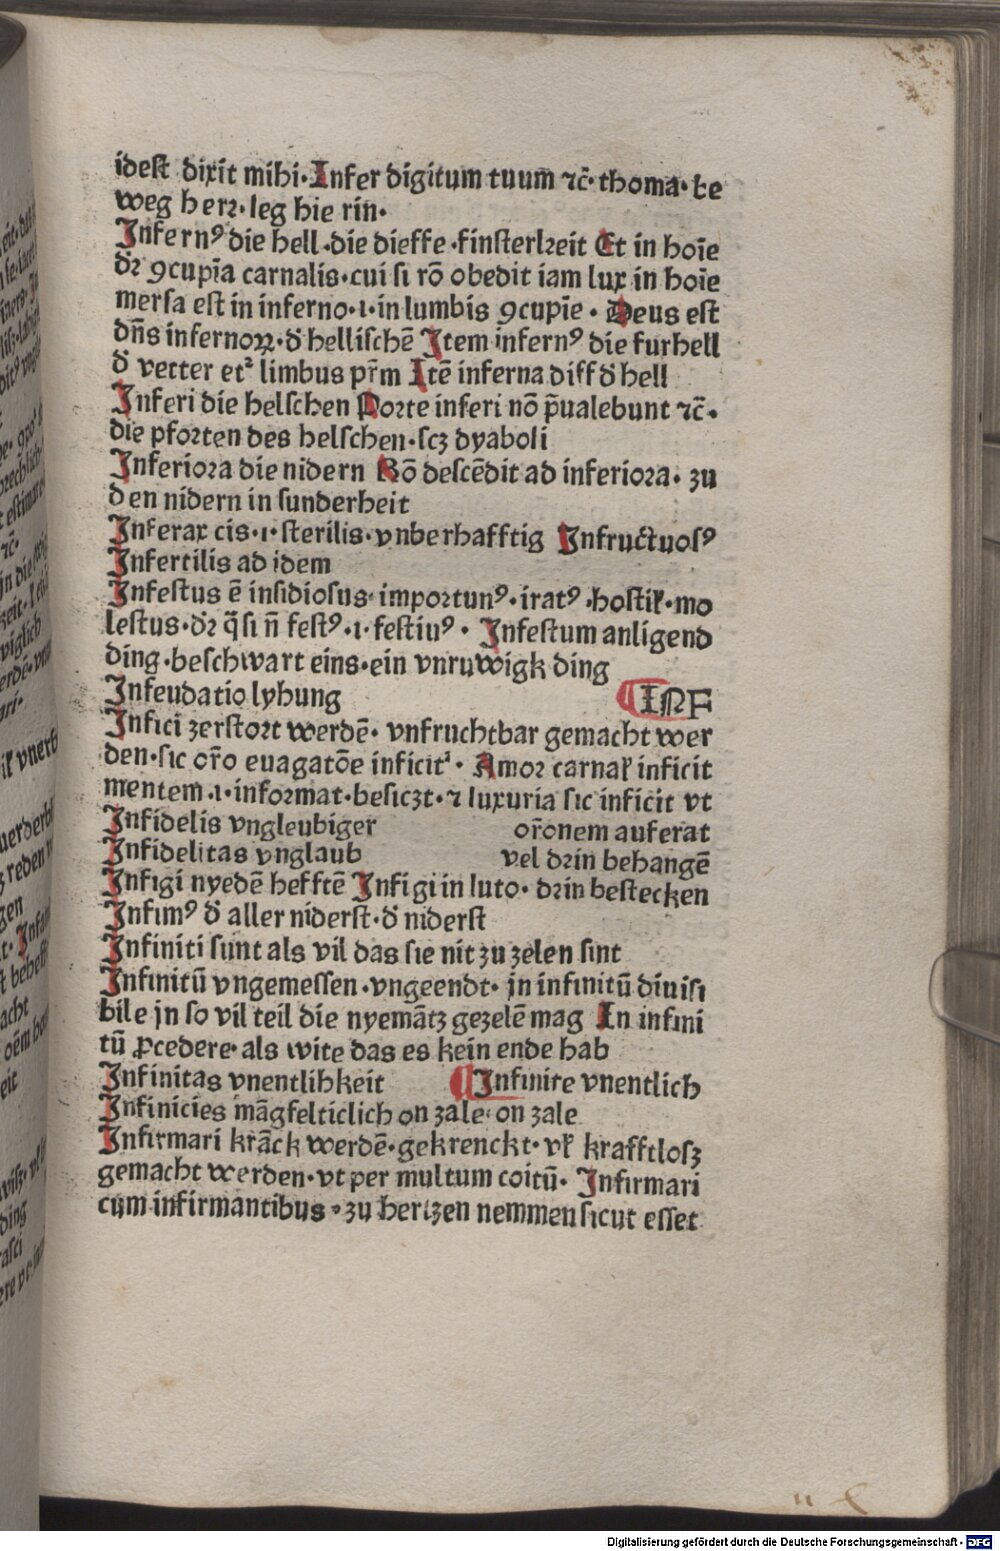 idest dixit mihi·Infer digitum tuum ⁊c̄·thoma·be
weg herꝛ·leg hie rin·
Infernꝰ die hell·die dieffe·finsterkeit Et in hoīe
dꝛ̄ ꝯcupīa carnalis·cui si rō obedit iam lux in hoīe
mersa est in inferno·i·in lumbis ꝯcupīe· Deus est
dn̄s infernoꝝ·d̄ hellischē Item infernꝰ die furhell
d̄ vetter et᷑ limbus pr̄m Itē inferna diff d̄ hell
Inferi die helschen Porte inferi nō p̄ualebunt ⁊c̄·
die pforten des helschen·scꝫ dyaboli
Inferiora die nidern Rō descēdit ad inferiora· zu
den nidern in sunderheit
Inferax cis·i·sterilis·vnberhafftig Infructuosꝰ
Infertilis ad idem
Infestus ē insidiosus·importunꝰ·iratꝰ·hostiꝉ·mo
lestus·dꝛ̄ q̄si n̄ festꝰ·i·festiuꝰ· Infestum anligend
ding·beschwart eins·ein vnruwigk ding
Infeudatio lyhung
INF
Infici zerstort werdē· vnfruchtbar gemacht wer
den·sic or̄o euagatōe inficit᷑· Amor carnaꝉ inficit
mentem·i·informat·besiczt·⁊ luxuria sic inficit vt
Infidelis vngleubiger or̄onem auferat
Infidelitas vnglaub vel drin behangē
Infigi nyedē hefftē Infigi in luto· drin bestecken
Infimꝰ d̄ aller niderst·d̄ niderst
Infiniti sunt als vil das sie nit zu zelen sint
Infinitū vngemessen·vngeendt· jn infinitū diuisi
bile jn so vil teil die nyemātz gezelē mag In infini
tū ꝓcedere·als wite das es kein ende hab
Infinitas vnentlihkeit Infinite vnentlich
Infinicies māgfelticlich on zale·on zale
Infirmari krāck werdē·gekrenckt·vꝉ krafftlosz
gemacht werden·vt per multum coitū· Infirmari
cum infirmantibus·zu hertzen nemmen sicut esset
Digitalisierung gefördert durch die Deutsche Forschungsgemeinschaft - DFG